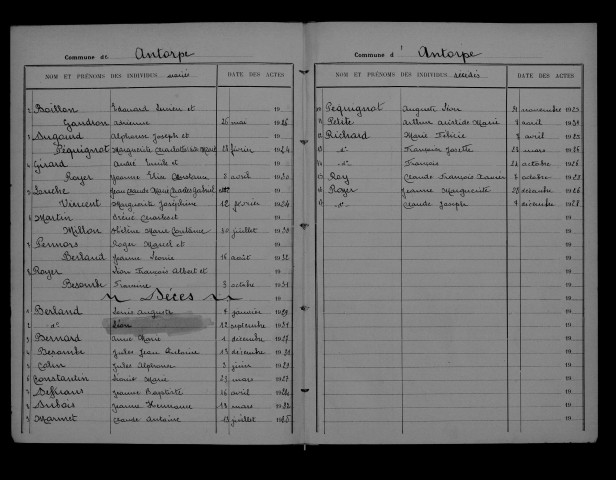 Commune de Antorpe
NOM ET PRÉNOMS DES INDIVIDUS mariés DATE DES ACTES
1 Boillon Edouard Lucien et 19
Gandron Adrienne 26 mai 1926
2 Dugaud Alphonse Joseph et 19
Péquignot Marguerite 23 février 1924
3 Girard André Emile et 19
Royer Jeanne 5 avril 1930
4 Louche Jean Claude Marie Charles Gabriel
Vincent Marguerite Joséphine 12 février 1924
5 Martin Charles et 19
Millon Marie Constance 10 juillet 1930
6 Pernors Roger Marcel et 19
Berland Jeanne Léonie 16 août 1932
7 Royer Léon François Albert et 19
Besombe 3 octobre 1931
Décès
1 Berland Louis Auguste 4 janvier 1929
2 d° Léon 12 septembre 1931
3 Bernard Anne Marie 1 décembre 1927
4 Besombe Jules Jean Antoine 13 décembre 1930
5 Colin Jules Alphonse 3 juin 1929
6 Constantin Marie 23 mars 1927
7 Jeanne Baptiste 16 avril
8 Dubois Jeanne Hermance 18 mars 1932
9 Marmet Claude Antoine 19 juillet 1925
Commune d' Antorpe
NOM ET PRÉNOMS DES INDIVIDUS décédés DATE DES ACTES
10 Pequignot Auguste Léon novembre 1923
11 Petite Arthur Aristide Marie 7 avril 1931
12 Richard Marie Félicie 8 avril 1923
13 d° François Josette 28 mars 1926
14 d° François 24 octobre 1926
15 Roy Claude François Xavier octobre 1923
16 Royer Jeanne Marguerite 28 décembre 1926
17 d° Claude Joseph 7 décembre 1928